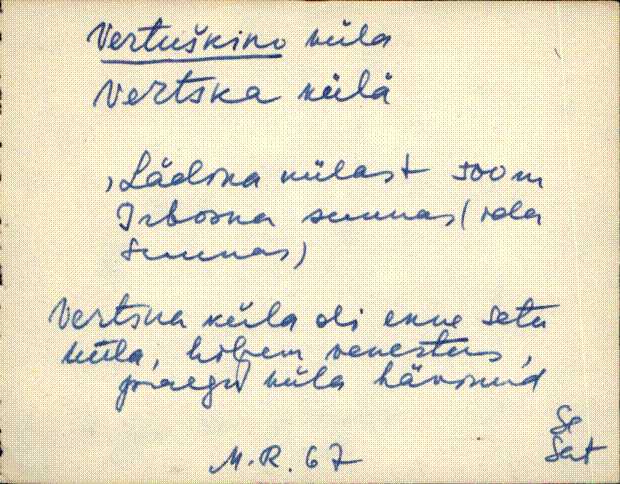 Vertuškino küla
Vertska külä
, Lädina külast 500 m
Irboska suunas (ida
suunas)
Vertska küla oli enne setu
küla, hiljem venestus,
praegu küla hävinud
Se
Set
M.R. 67